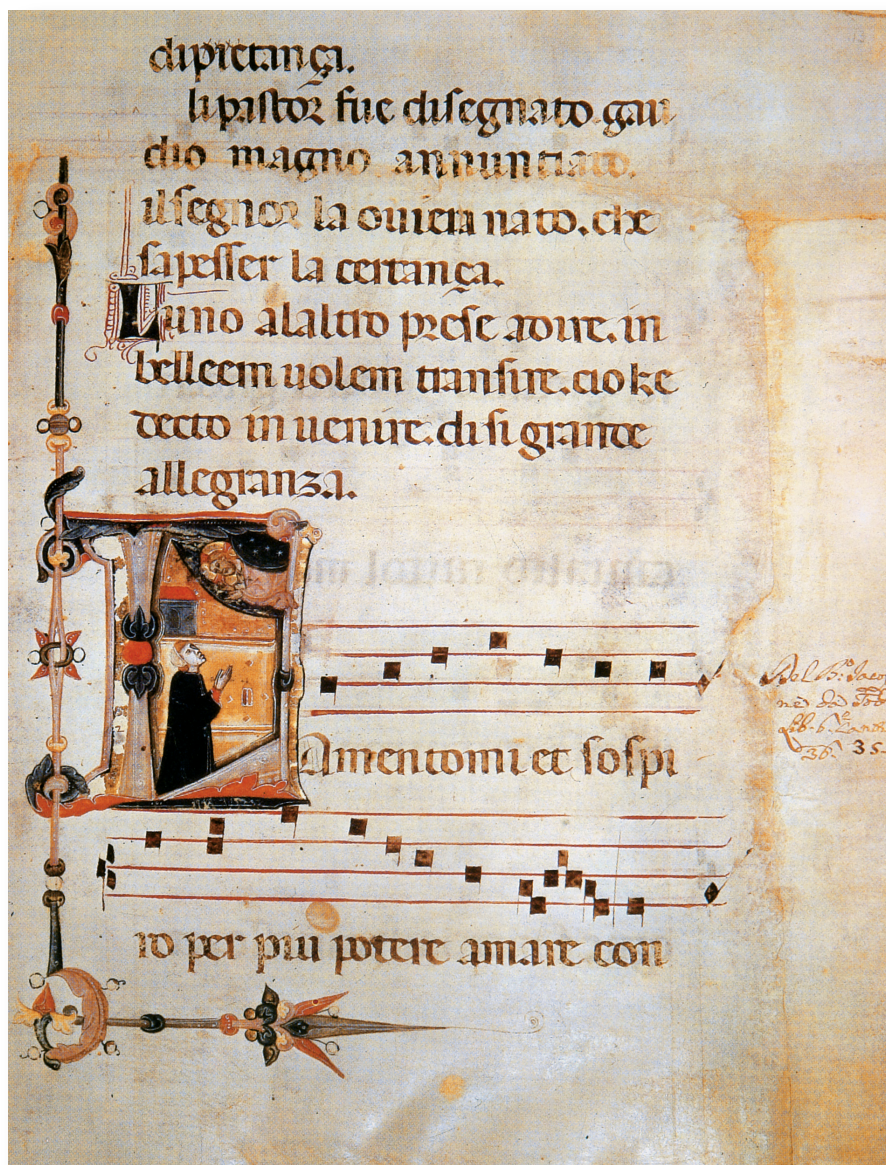 di pietança.
li pastor fue disegnato. gau
dio magno annuntiato.
il segnor la oviera nato. che
sapesser la certança.
Luno alaltro prese adire. in
belleem uolem transire. cio ke
decto in uenire. di si grande
allegranza.
LAmentomi et sospi
ro per piu potere amare con
Del B.
35